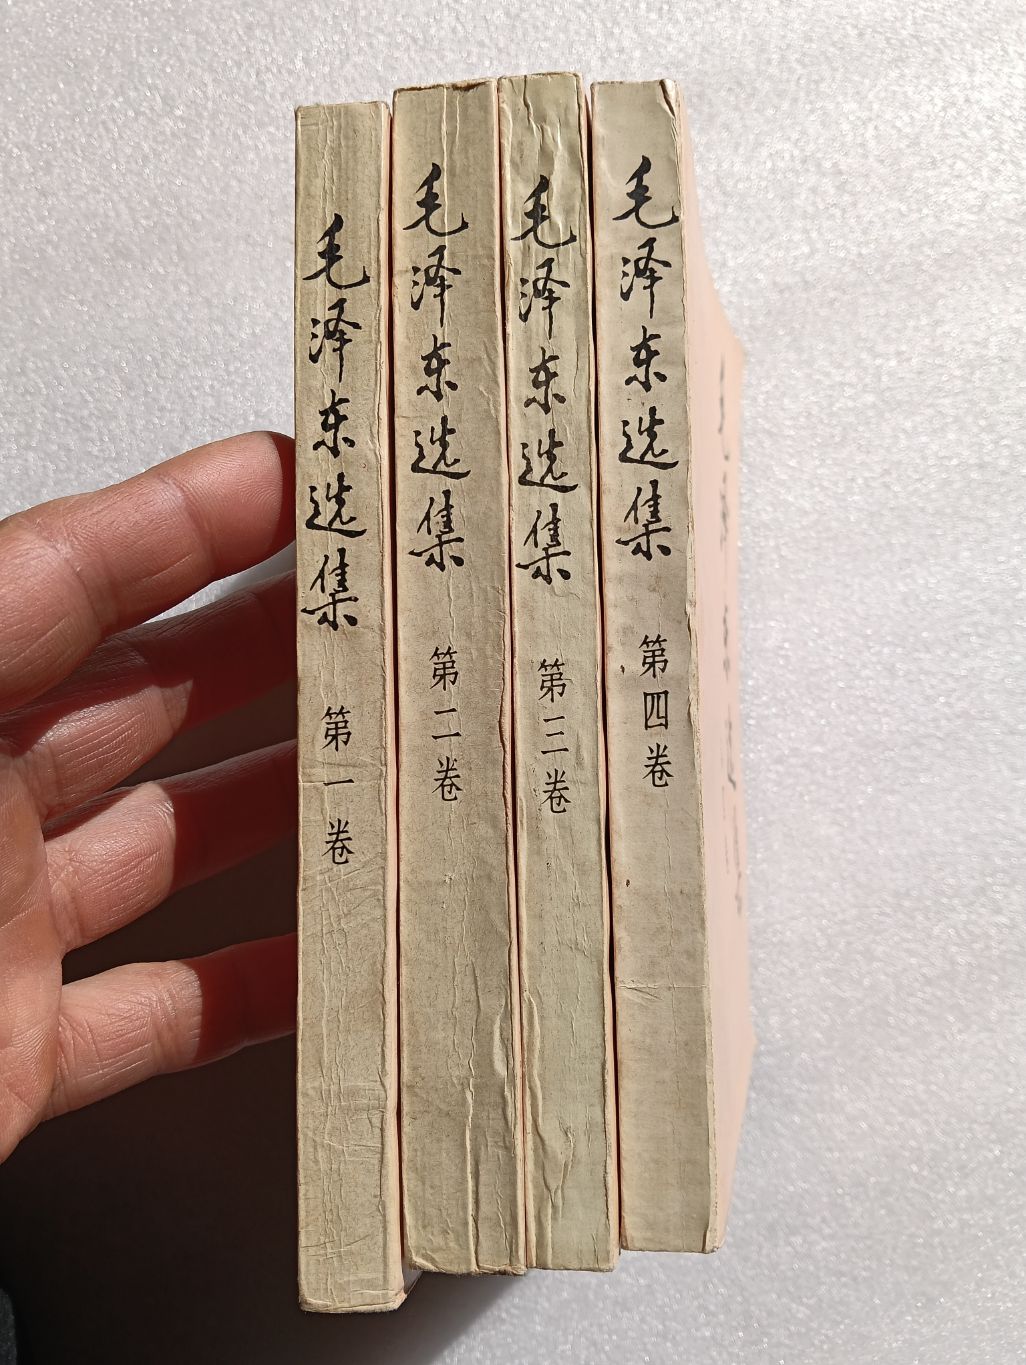 毛泽东选集 第一卷
毛泽东选集 第二卷
毛泽东选集 第三卷
毛泽东选集 第四卷